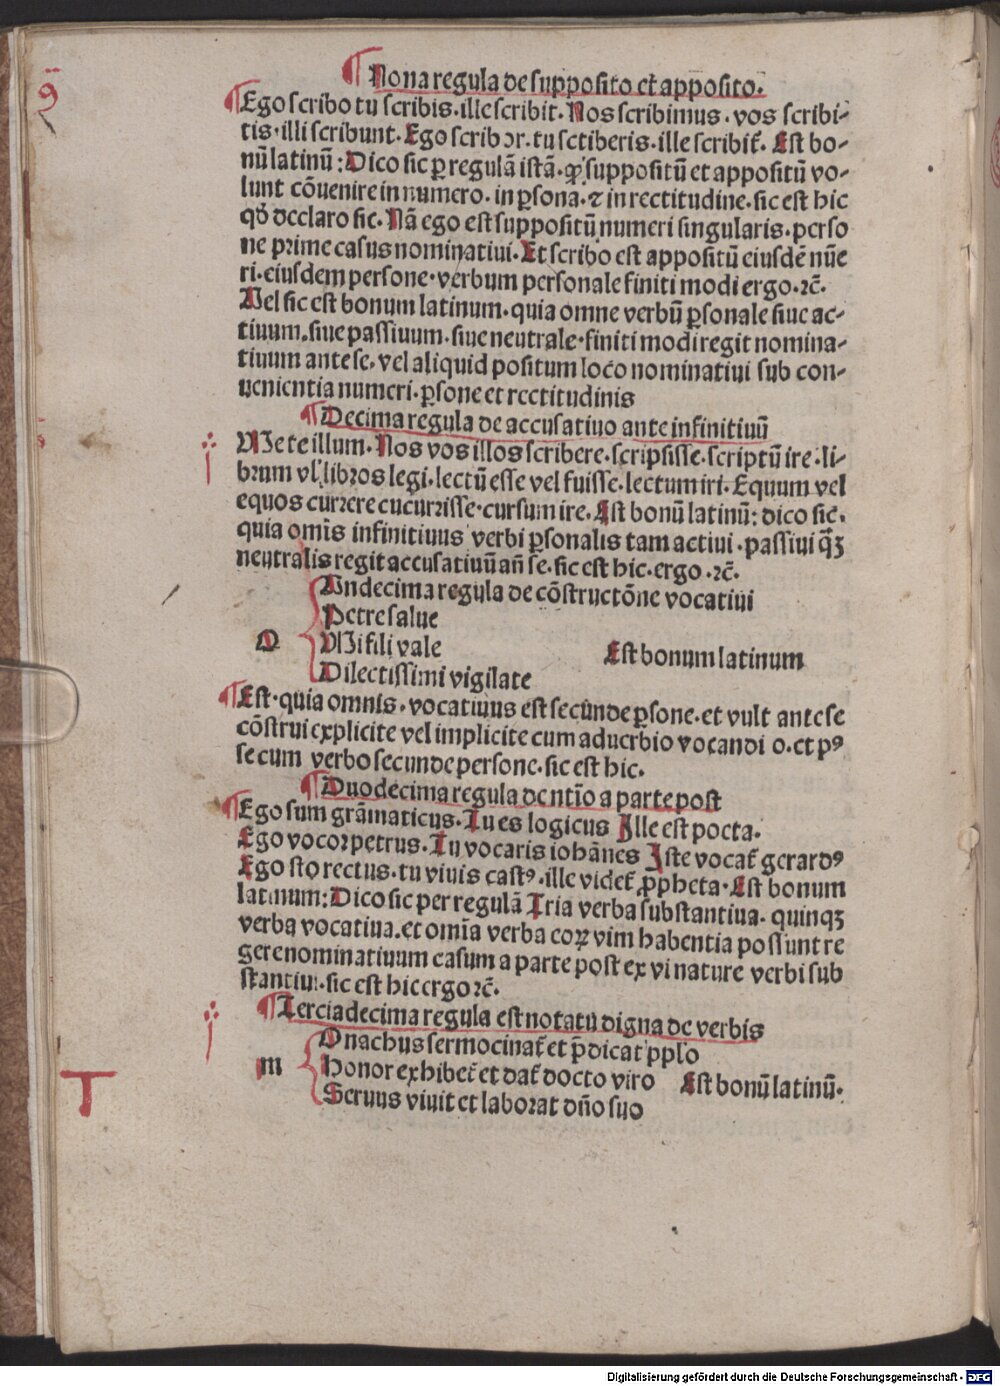 ¶ Nona regula de supposito et apposito.
¶ Ego scribo tu scribis. ille scribit. Nos scribimus. vos scribi-
tis. illi scribunt. Ego scribor. tu sctiberis. ille scribit̃. Est bo-
nũ latinũ: Dico sic ꝑ regulã istã. ꝙ suppositũ et appositũ vo-
lunt cõuenire in numero. in ꝑsona. ⁊ in rectitudine. sic est hic
qð declaro sic. Nã ego est suppositũ numeri singularis. perso
ne prime casus nominatiui. Et scribo est appositũ eiusdẽ nũe
ri. eiusdem persone. verbum personale finiti modi ergo. ⁊c̃.
Uel sic est bonum latinum. quia omne verbũ ꝑsonale siue ac-
tiuum. siue passiuum. siue neutrale. finiti modi regit nomina-
tiuum ante se. vel aliquid positum loco nominatiui sub con-
uenientia numeri. ꝑsone et rectitudinis
¶ Decima regula de accusatiuo ante infinitiuũ
Me te illum. Nos vos illos scribere. scripsisse. scriptũ ire. li-
brum vl̕ libros legi. lectũ esse vel fuisse. lectum iri. Equum vel
equos currere cucurrisse. cursum ire. Est bonũ latinũ: dico sic.
quia om̃is infinitiuus verbi ꝑsonalis tam actiui. passiui q̃ꝫ
neutralis regit accusatiuũ añ se. sic est hic. ergo. ⁊c̃.
Undecima regula de cõstructõne vocatiui
Petre salue
O Mi fili vale Est bonum latinum
Dilectissimi vigilate
¶ Est. quia omnis. vocatiuus est secunde ꝑsone. et vult ante se
cõstrui explicite vel implicite cum aduerbio vocandi o. et pꝰ
se cum verbo secunde persone. sic est hic.
¶ Duodecima regula de ntĩo a parte post
¶ Ego sum grãmaticus. Tu es logicus Ille est poeta.
Ego vocor petrus. Tu vocaris iohãnes Iste vocat̃ gerardꝰ
Ego sto rectus. tu viuis castꝰ. ille videt̃ ꝓpheta. Est bonum
latinum: Dico sic per regulã Tria verba substantiua. quinqꝫ
verba vocatiua. et om̃ia verba eoꝝ vim habentia possunt re
gere nominatiuum casum a parte post ex vi nature verbi sub
stantiui. sic est hic ergo ⁊c̃.
¶ Terciadecima regula est notatu digna de verbis
Onachus sermocinat̃ et p̃dicat pplo
m Honor exhibet̃ et dat̃ docto viro Est bonũ latinũ.
Seruus viuit et laborat dño suo
T
Digitalisierung gefördert durch die Deutsche Forschungsgemeinschaft - DFG